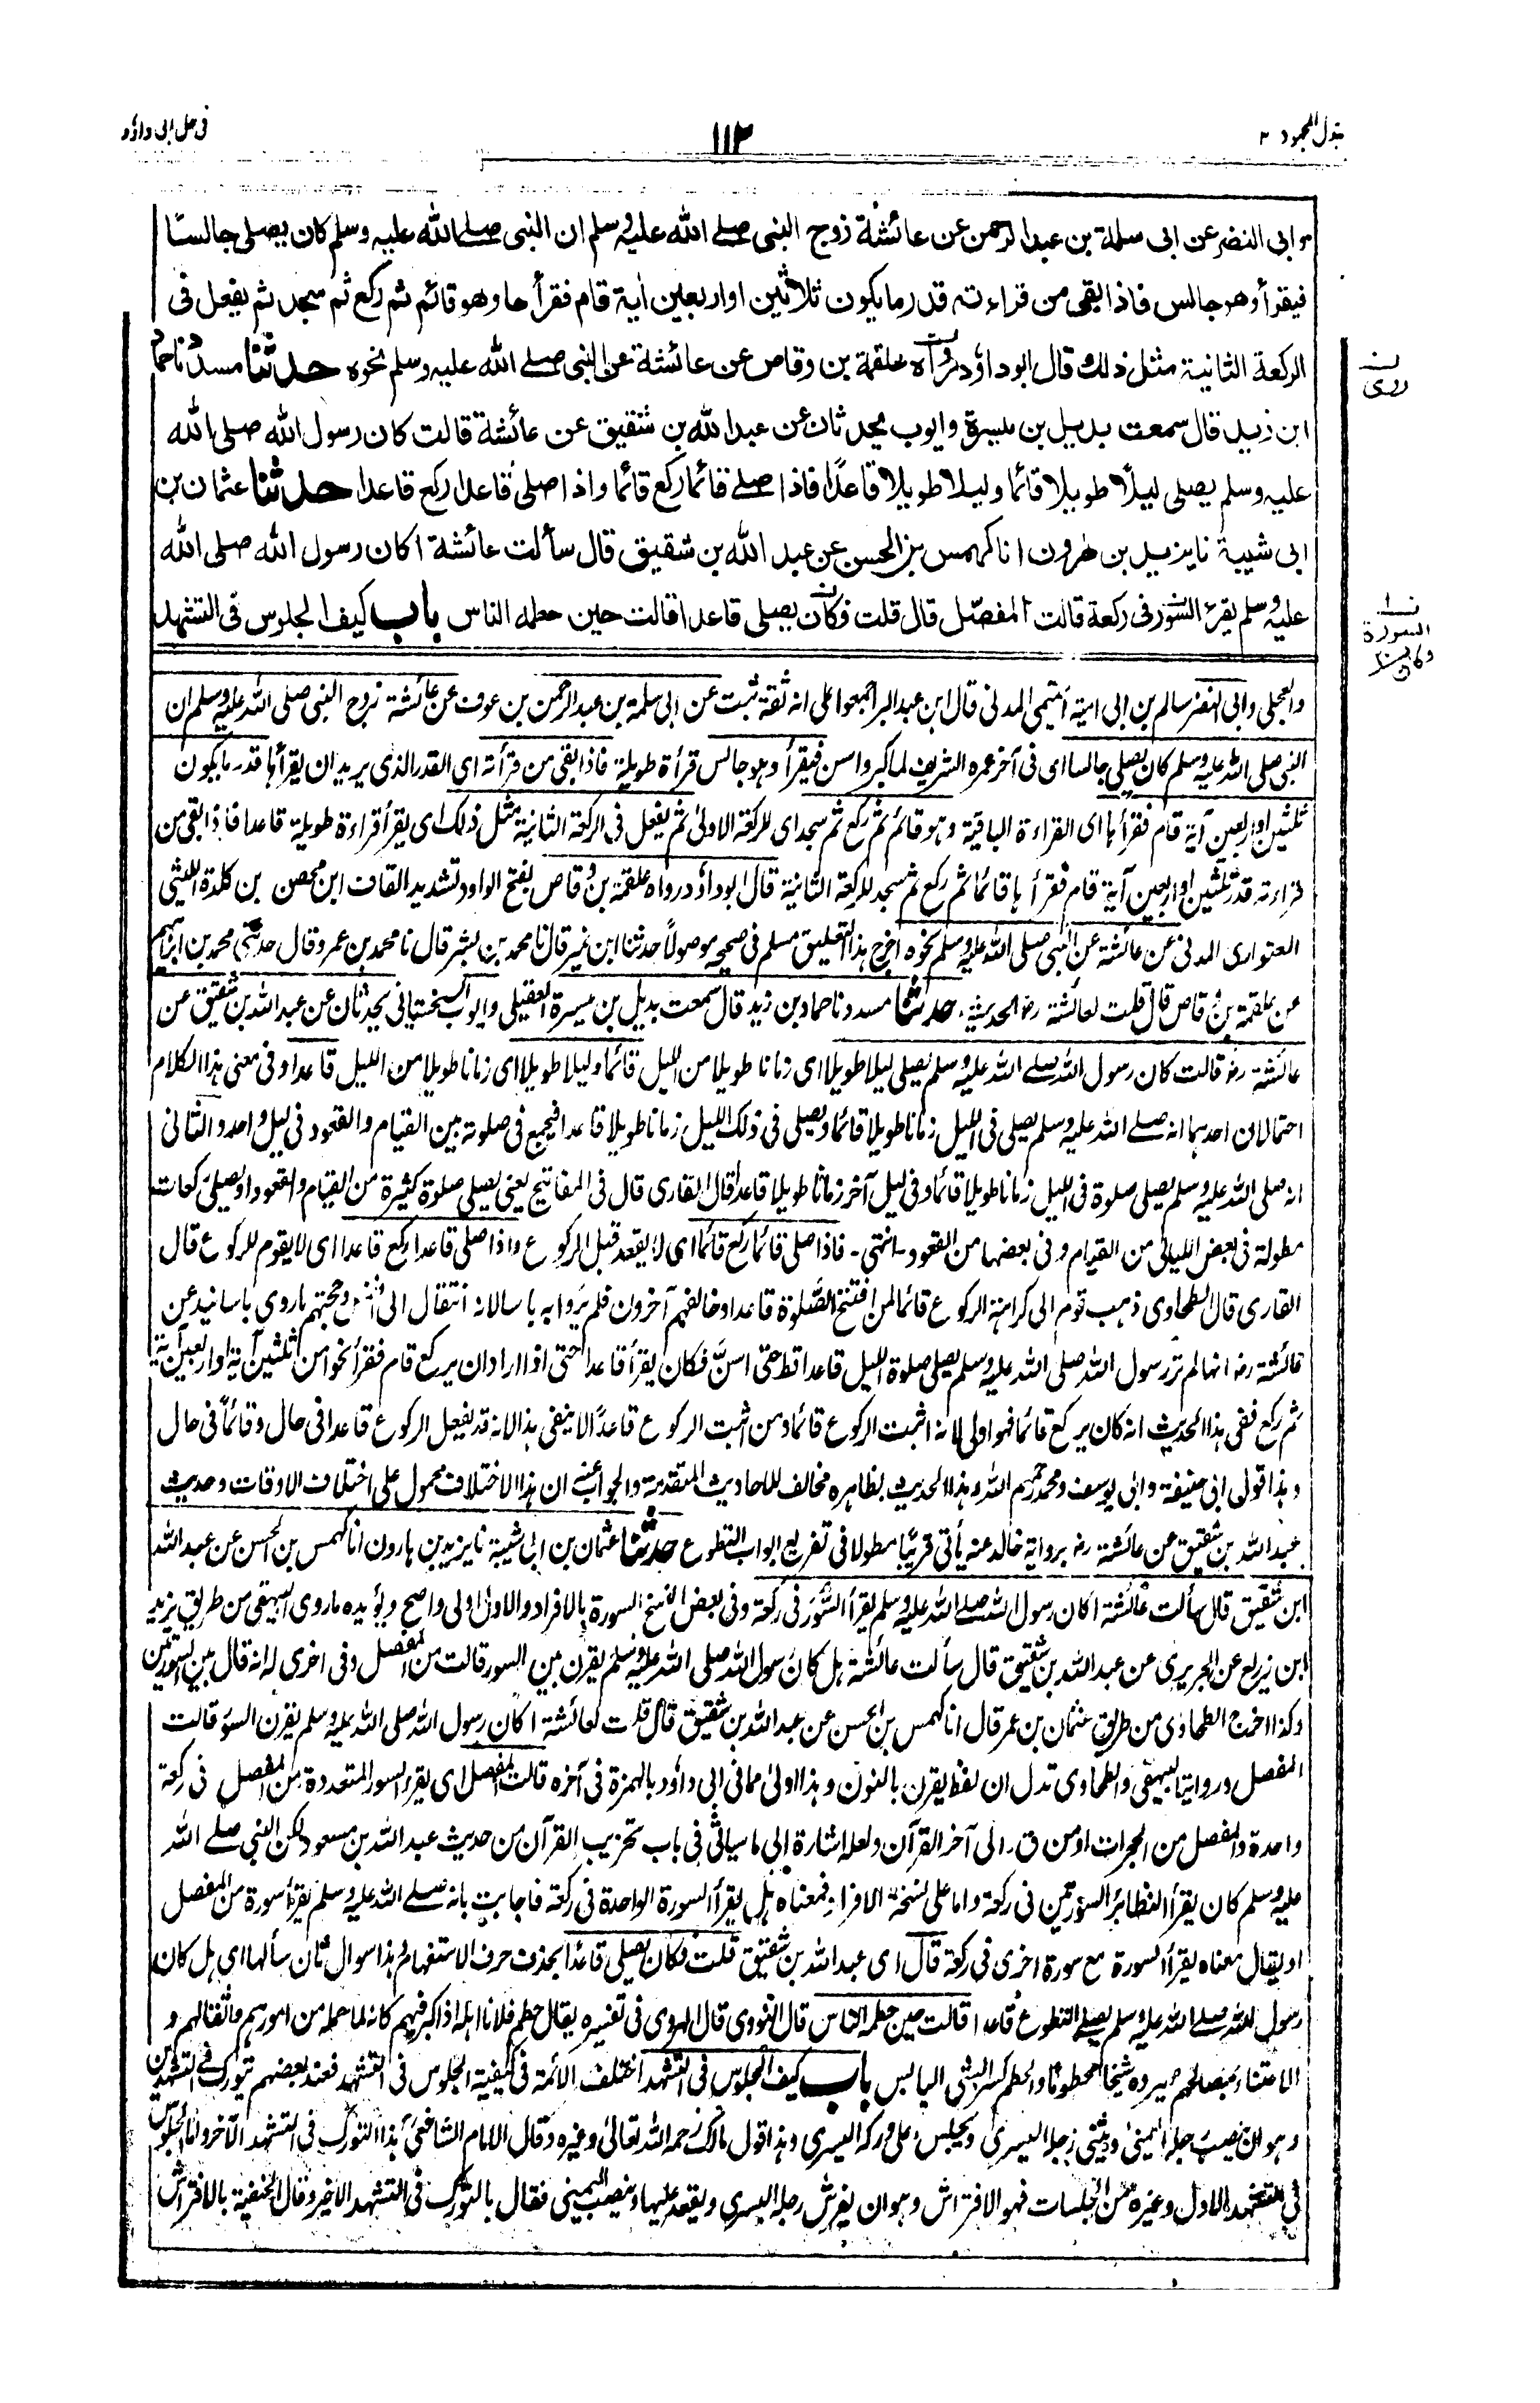 بذل المجهود ٢
١١٣
فی حل ابی داؤد
وابی النضر عن ابی سلمة بن عبد الرحمن عن عائشة زوج النبی صلے الله علیه وسلم ان النبی صلے الله علیه وسلم کان یصلی جالسًا
فیقرأ وهو جالس فاذا بقی من قراءته قدر ما یکون ثلاثین او اربعین اٰیة قام فقرأ ها وهو قائم ثم رکع ثم سجد ثم یفعل فی
الرکعة الثانیة مثل ذلك قال ابو داؤد رواه علقمة بن وقاص عن عائشة عن النبی صلے الله علیه وسلم نحوه حدثنا مسدد نا حماد
ابن زید قال سمعت بدیل بن میسرة وایوب یحدثان عن عبد الله بن شقیق عن عائشة قالت کان رسول الله صلی الله
علیه وسلم یصلی لیلًا طویلا قائما ولیلا طویلا قاعدًا فاذا صلے قائما رکع قائما واذا صلی قاعدا رکع قاعدا حدثنا عثمان بن
ابی شیبة نا یزید بن هٰرون انا کهمس بن الحسن عن عبد الله بن شقیق قال سألت عائشة اکان رسول الله صلی الله
علیه وسلم یقرء السور فی رکعة قالت المفصّل قال قلت فکان یصلی قاعدا قالت حین حطمه الناس باب کیف الجلوس فی التشهد
ن
روی
ن ١
السورة
وکان
والعجلی وابی النضر سالم بن ابی امیة التیمی المدنی قال ابن عبد البر اجمعوا علی انه ثقة ثبت عن ابی سلمة بن عبد الرحمن بن عوف عن عائشة زوج النبی صلی الله علیه وسلم ان
النبی صلی الله علیه وسلم کان یصلی جالسا ای فی آخر عمره الشریف لما کبر واسن فیقرأ وهو جالس قرأة طویلة فاذا بقی من قرأته ای القدر الذی یرید ان یقرأ ها قدر ما یکون
ثلثین او اربعین آیة قام فقرأ ها ای القراءة الباقیة وهو قائم ثم رکع ثم سجد ای للرکعة الاولیٰ ثم یفعل فی الرکعة الثانیة مثل ذلک ای یقرأ قراءة طویلة قاعدا فاذا بقی من
قراءته قدر ثلثین او اربعین آیة قام فقرأ ها قائما ثم رکع ثم سجد للرکعة الثانیة قال ابو داؤد ورواه علقمة بن وقاص بفتح الواو وتشدید القاف ابن محصن بن کلدة اللیثی
العتواری المدنی عن عائشة عن النبی صلی الله علیه وسلم نحوه اخرج هذا التعلیق مسلم فی صحیحه موصولًا حدثنا ابن نمیر قال نا محمد بن بشر قال نا محمد بن عمرو قال حدثنی محمد بن ابراهیم
عن علقمة بن وقاص قال قلت لعائشة رض الحدیث. حدثنا مسدد نا حماد بن زید قال سمعت بدیل بن میسرة العقیلی وایوب السختیانی یحدثان عن عبد الله بن شقیق عن
عائشة رض قالت کان رسول الله صلے الله علیه وسلم یصلی لیلا طویلا ای زمانا طویلا من اللیل قائما ولیلا طویلا ای زمانا طویلا من اللیل قاعدا وفی معنی هذا الکلام
احتمالان احدهما انه صلے الله علیه وسلم یصلی فی اللیل زمانا طویلا قائما ویصلی فی ذلک اللیل زمانا طویلا قاعدا فیجمع فی صلوته بین القیام والقعود فی لیل واحد والثانی
انه صلی الله علیه وسلم یصلی صلوة فی اللیل زمانا طویلا قائما وفی لیل آخر زمانا طویلا قاعدا قال القاری قال فی المفاتیح یعنی یصلی صلوة کثیرة من القیام والقعود او یصلی رکعات
مطولة فی بعض اللیالی من القیام وفی بعضها من القعود ـ انتهی ـ فاذا صلی قائما رکع قائما ای لا یقعد قبل الرکوع واذا صلی قاعدا رکع قاعدا ای لا یقوم للرکوع قال
القاری قال الطحاوی ذهب قوم الی کراهة الرکوع قائما لمن افتتح الصلوة قاعدا وخالفهم آخرون فلم یروا به باسا لانه انتقال الی وحجتهم ما روی باسانید عن
عائشة رض انها لم تر رسول الله صلی الله علیه وسلم یصلی صلوة اللیل قاعدا قط حتی اسنّ فکان یقرأ قاعدا حتی اذا اراد ان یرکع قام فقرأ نحوا من ثلثین آیة او اربعین آیة
ثم رکع ففی هذا الحدیث انه کان یرکع قائما فهو اولی لانه اثبت الرکوع قائما ومن اثبت الرکوع قاعدًا لا ینفی هذا لانه قد یفعل الرکوع قاعدا فی حال وقائمًا فی حال
وهذا قول ابی حنیفة وابی یوسف ومحمد رحمهم الله وهذا الحدیث بظاهره مخالف للاحادیث المتقدمة والجواب عنه ان هذا الاختلاف محمول علی اختلاف الاوقات وحدیث
عبد الله بن شقیق عن عائشة رض بروایة خالد عنه یأتی قریبًا مطولا فی تفریع ابواب التطوع حدثنا عثمان بن ابی شیبة نا یزید بن هارون انا کهمس بن الحسن عن عبد الله
ابن شقیق قال سألت عائشة اکان رسول الله صلے الله علیه وسلم یقرأ السُّوَر فی رکعة وفی بعض النسخ السورة بالافراد والاول اولی واصح ویؤیده ما روی البیهقی من طریق یزید
ابن زریع عن الجریری عن عبد الله بن شقیق قال سألت عائشة هل کان رسول الله صلی الله علیه وسلم یقرن بین السور قالت من المفصل وفی اخری له انه قال بین السورتین
وکذا اخرج الطحاوی من طریق عثمان بن عمر قال انا کهمس بن الحسن عن عبد الله بن شقیق قال قلت لعائشة اکان رسول الله صلی الله علیه وسلم یقرن السور قالت
المفصل وروایة البیهقی والطحاوی تدل ان لفظ یقرن بالنون وهذا اولیٰ مما فی ابی داؤد بالهمزة فی آخره قالت المفصل ای یقرء السور المتعددة من المفصل فی رکعة
واحدة والمفصل من الحجرات او من ق ـ الی آخر القرآن ولعله اشارة الی ما سیاتی فی باب تحزیب القرآن من حدیث عبد الله بن مسعود لکن النبی صلے الله
علیه وسلم کان یقرأ النظائر السورتین فی رکعة واما علی نسخة الافراد فمعناه هل یقرأ السورة الواحدة فی رکعة فاجابت بانه صلے الله علیه وسلم یقرأ سورة من المفصل
او یقال معناه یقرأ السورة مع سورة اخری فی رکعة قال ای عبد الله بن شقیق قلت فکان یصلی قاعدًا بحذف حرف الاستفهام هذا سوال ثان سألها ای هل کان
رسول الله صلے الله علیه وسلم یصلے التطوع قاعدا قالت حین حطمه الناس قال النووی قال الهروی فی تفسیره یقال حطم فلانا اهله اذا کبر فیهم کانه لما حمله من امورهم واثقالهم و
الاعتناء بمصالحهم صیروه شیخًا محطومًا والحطم کسر الشئی الیابس باب کیف الجلوس فی التشهد اختلف الائمة فی کیفیة الجلوس فی التشهد فعند بعضهم تورک فی التشهدین
وهو ان ینصب رجله الیمنیٰ ویثنی رجله الیسریٰ ویجلس علی ورکه الیسری وهذا قول مالک رحمه الله تعالیٰ وغیره وقال الامام الشافعی هذا التورک فی التشهد الآخر واما الجلوس
فی التشهد الاول وغیره من الجلسات فهو الافتراش وهو ان یفرش رجله الیسری ویقعد علیها وینصب الیمنی فقال بالتورک فی التشهد الاخیر وقال الحنفیة بالافتراش